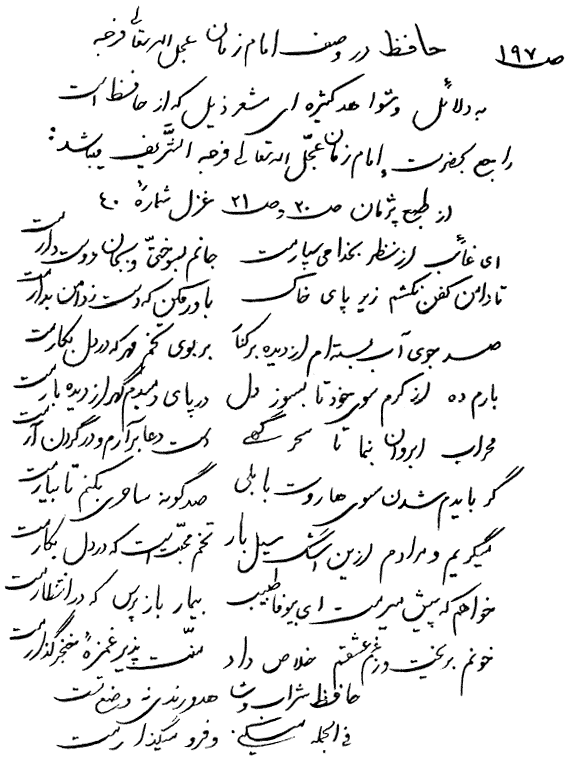 ص ۱۹۷ حافظ در وصف امام زمان عجل اله تعالی فرجه
به دلائل و شواهد کثیره ای شعر ذیل که از حافظ است
راجع بحضرت امام زمان عجّل اله تعالی فرجه الشّریف میباشد :
از طبع پژمان ص ۲۰ و ص ۲۱ غزل شمارهٔ ۴۰
ای غائب از نظر بخدا می سپارمت جانم بسوختیّ و بجان دوست دارمت
تا دامن کفن نکشم زیر پای خاک باور مکن که دست ز دامن بدارمت
صد جوی آب بسته ام از دیده برکنار بر بوی تخم مهر که در دل بکارمت
بارم ده از کرم سوی خود تا بسوز دل در پای دمبدم گهر از دیده بارمت
محراب ابروان بنما تا سحرگهی دست دعا برآرم و در گردن آرمت
گر بایدم شدن سوی هاروت بابلی صد گونه ساحری بکنم تا بیارمت
میگریم و مرادم ازین اشک سیل بار تخم محبّت است که در دل بکارمت
خواهم که پیش میرمت ای بیوفا طبیب بیمار باز پرس که در انتظارمت
خونم بریخت و ز غم عشقم خلاص داد منّت پذیر غمزهٔ خنجر گذارمت
حافظ شراب و شاهد و رندی نه وضع تست
فی الجمله میکنی و فرو میگذارمت